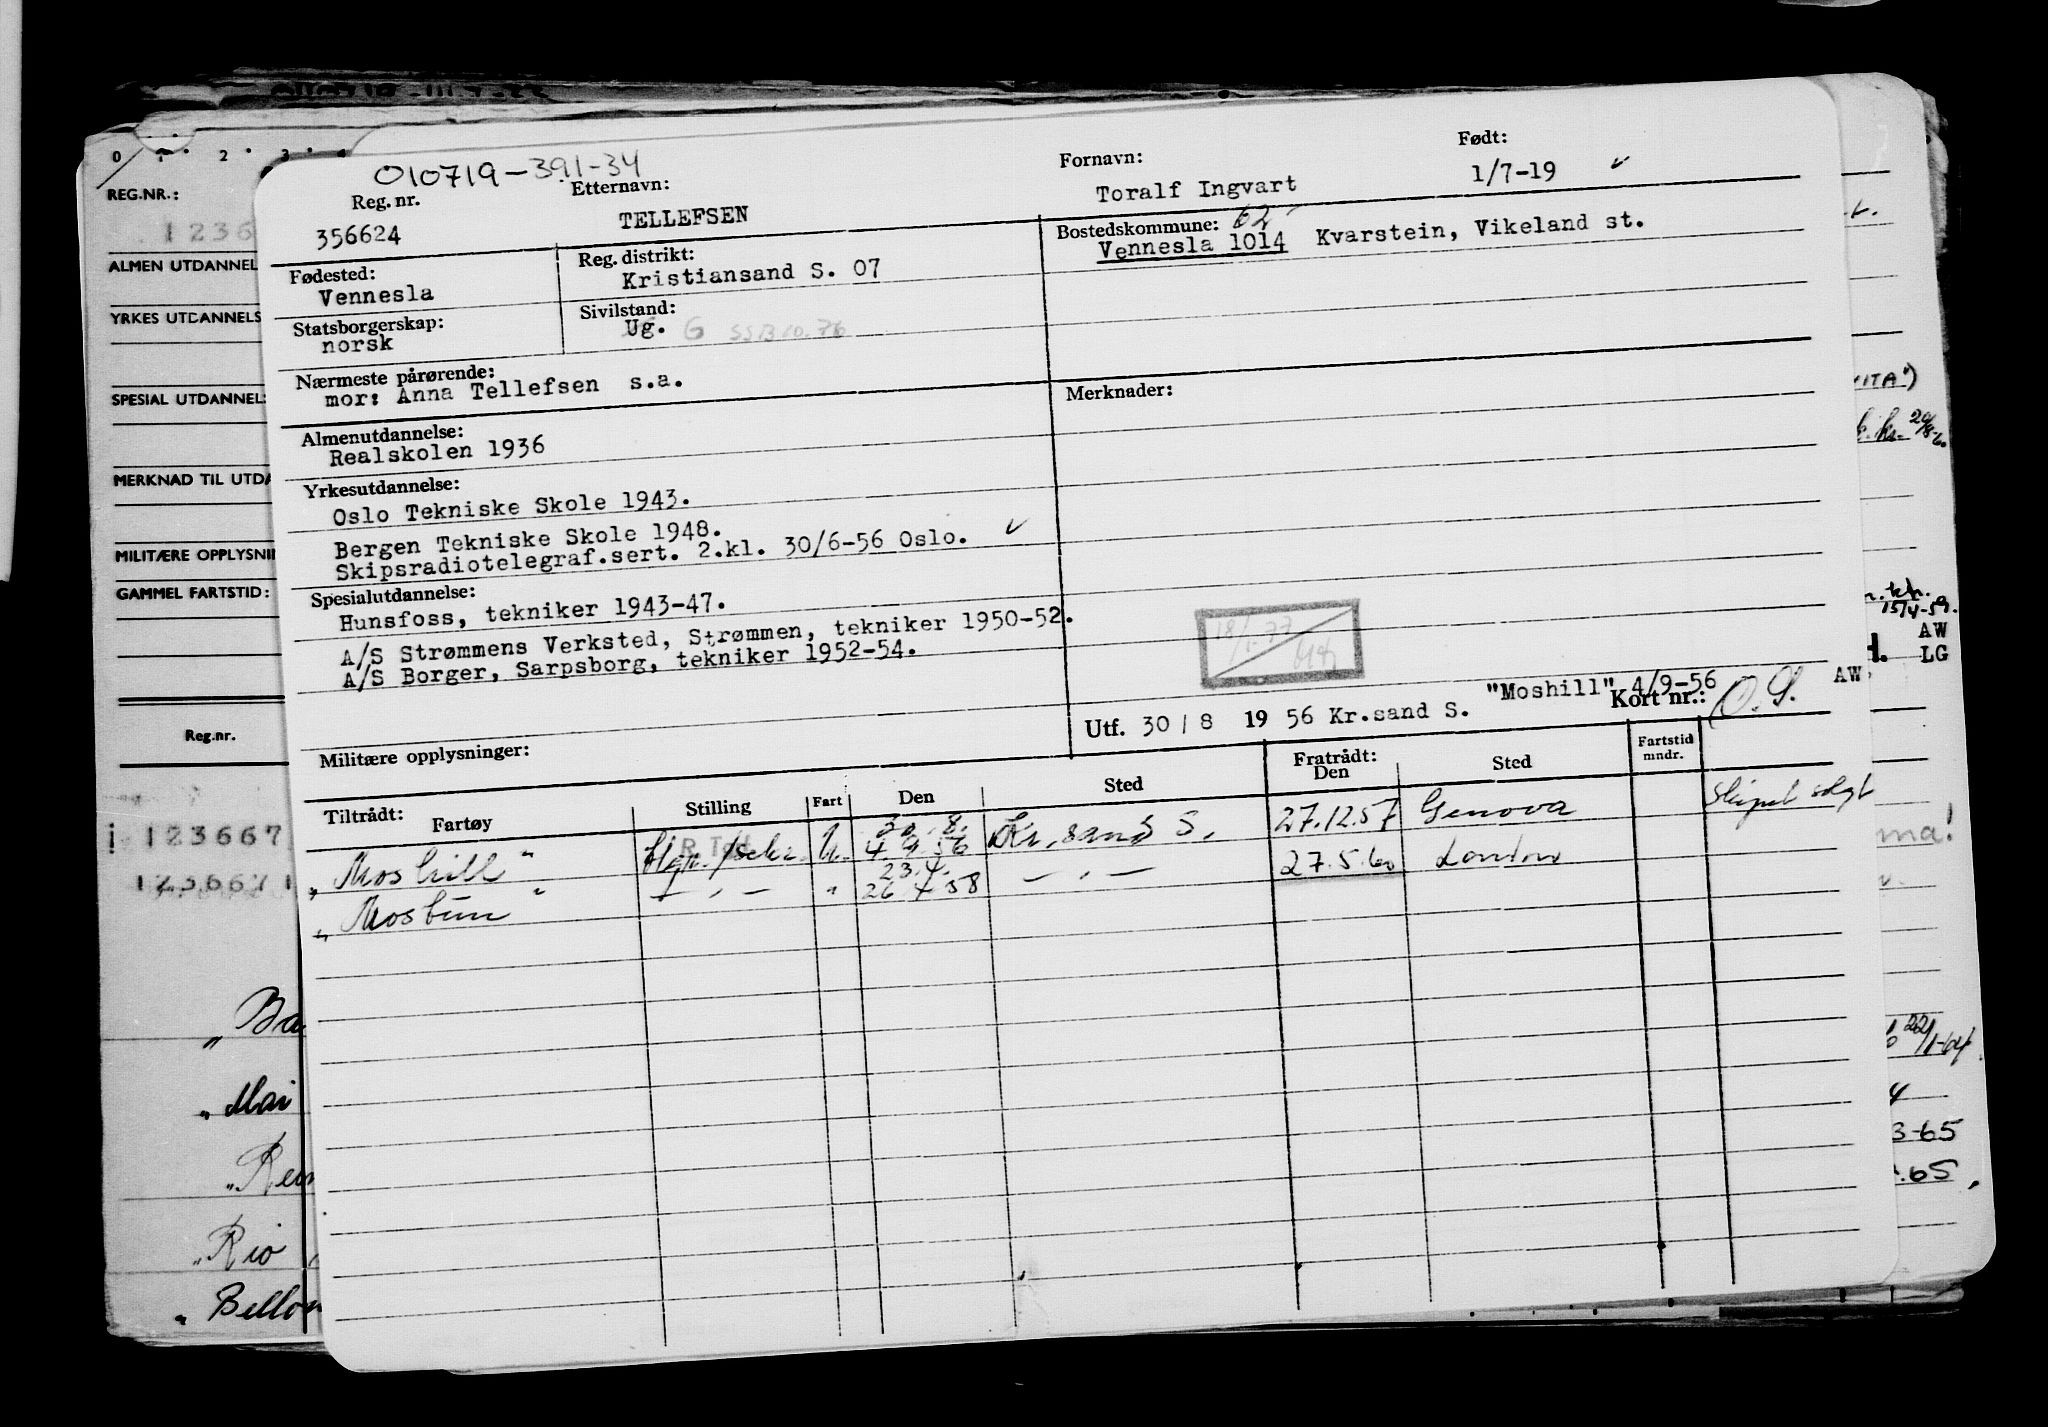 0 1 2 3 4
REG.NR.:
1236
ALMEN UTDANNEL
YRKES UTDANNELS
SPESIAL UTDANNEL
MERKNAD TIL UTDA
MILITÆRE OPPLYSNI
GAMMEL FARTSTID:
Reg.nr.
123667
123667
„Ba
„Mar
„Rio
„Bellon
010719-391-34
Reg. nr.
356624
Etternavn:
TELLEFSEN
Fornavn:
Toralf Ingvart
Født:
1/7-19 ✓
Fødested:
Vennesla
Reg. distrikt:
Kristiansand S. 07
Bostedskommune: 62
Vennesla 1014 Kvarstein, Vikeland st.
Statsborgerskap:
norsk
Sivilstand:
Ug. G SSB 10.76
Nærmeste pårørende:
mor: Anna Tellefsen s.a.
Merknader:
Almenutdannelse:
Realskolen 1936
Yrkesutdannelse:
Oslo Tekniske Skole 1943.
Bergen Tekniske Skole 1948.
Skipsradiotelegraf.sert. 2.kl. 30/6-56 Oslo. ✓
Spesialutdannelse:
Hunsfoss, tekniker 1943-47.
A/S Strømmens Verksted, Strømmen, tekniker 1950-52.
A/S Borger, Sarpsborg, tekniker 1952-54.
18/1-77
"Moshill" 4/9-56 AW.
Utf. 30/8 1956 Kr.sand S. Kort nr.: O.S.
Militære opplysninger:
Tiltrådt: Fartøy Stilling Fart Den Sted Fratrådt: Den Sted Fartstid mndr.
„Moshill" U. 30.8. 4.9.56 Kr.sand S. 27.12.57 Genova Skipet solgt
„Mostun" — „ — " 23.4. 26.4.58 — „ — 27.5.60 London
VITA")
15/4-59.
AW
LG
ma!
22/1-64
4
3-65
.65